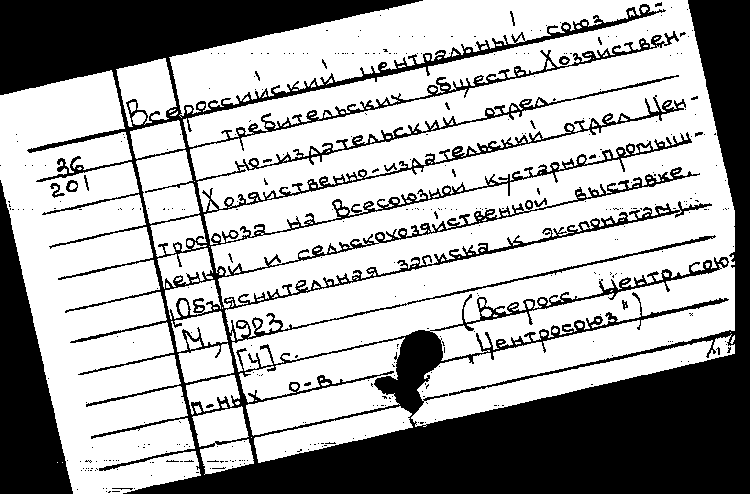 Всероссийский центральный союз по-
требительских обществ. Хозяйствен-
но-издательский отдел.
36
201
Хозяйственно-издательский отдел Цен-
тросоюза на Всесоюзной кустарно-промыш-
ленной и сельскохозяйственной выставке.
Объяснительная записка к экспонатам...
М., 1923.
[4] с. (Всеросс. Центр. союз
п-ных о-в. „Центросоюз")